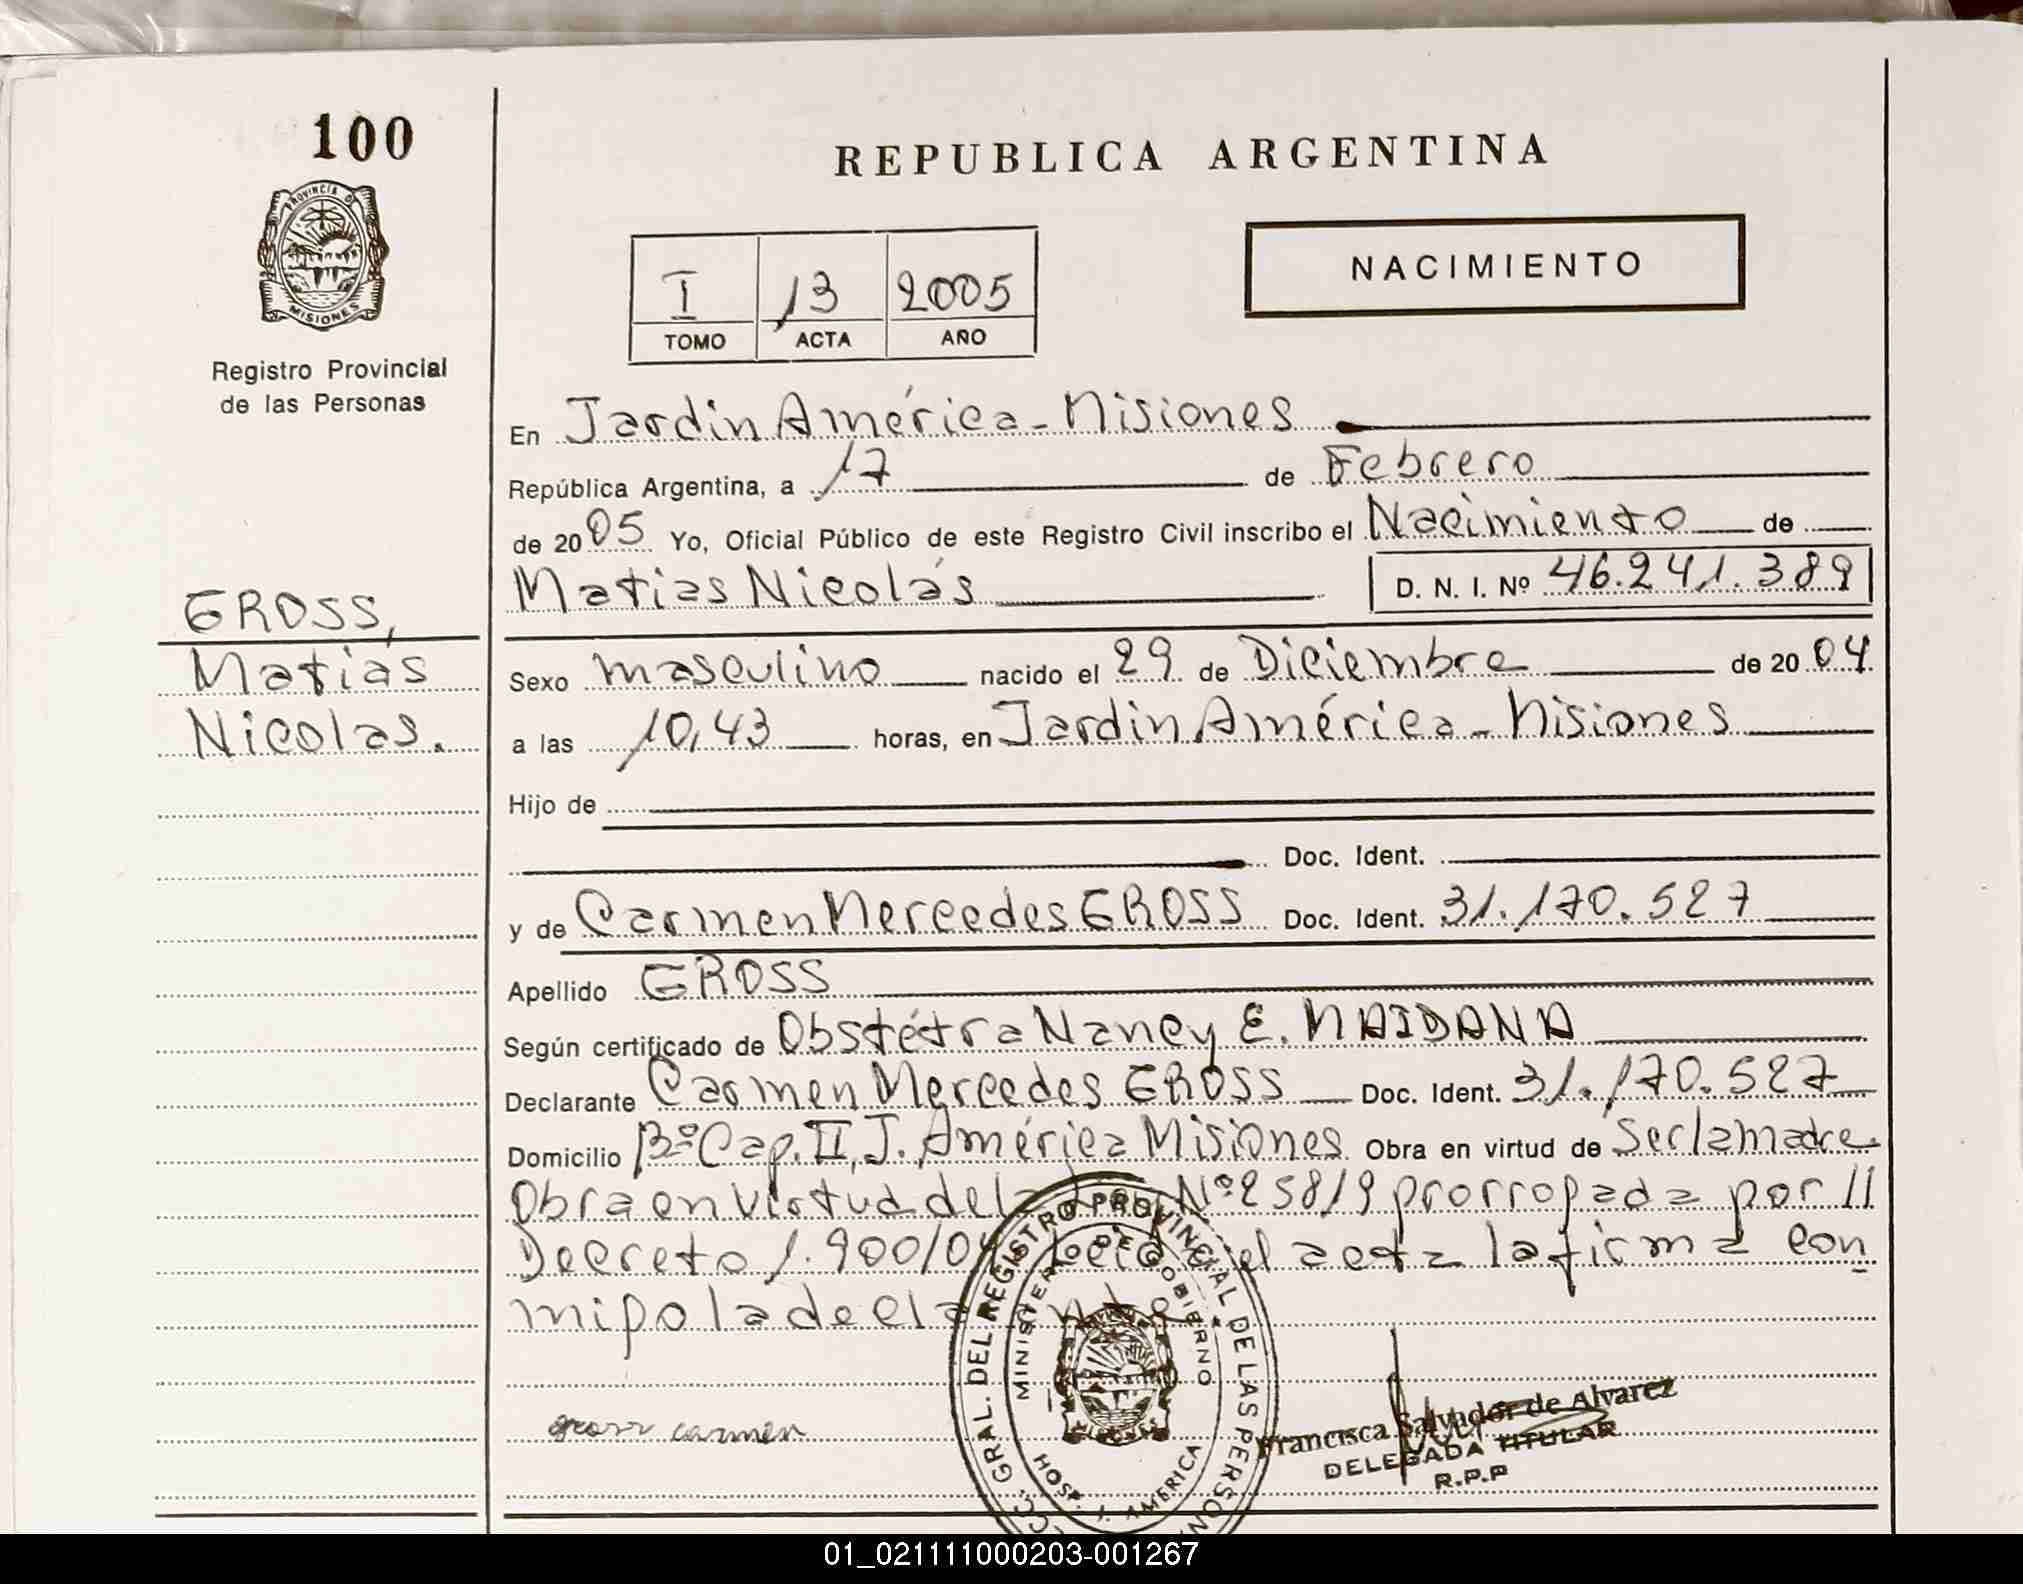 100
PROVINCIA DE
MISIONES
Registro Provincial
de las Personas
GROSS,
Matías
Nicolas.
REPUBLICA ARGENTINA
I 13 2005
TOMO ACTA AÑO
NACIMIENTO
En Jardin América - Misiones
República Argentina, a 17 de Febrero
de 2005 Yo, Oficial Público de este Registro Civil inscribo el Nacimiento de
Matias Nicolás D. N. I. Nº 46.241.389
Sexo masculino nacido el 29 de Diciembre de 2004.
a las 10,43 horas, en Jardin América - Misiones
Hijo de
Doc. Ident.
y de Carmen Mercedes GROSS Doc. Ident. 31.170.527
Apellido GROSS
Según certificado de Obstétra Nancy E. MAIDANA
Declarante Carmen Mercedes GROSS Doc. Ident. 31.170.527
Domicilio Bº Cap. II, J. América Misiones Obra en virtud de Ser la madre.
Obra en virtud de la Ley Nº 25819 prorrogada por
Decreto 1.900/04 Leida el acta la firma con
mipo la decla
gross carmen
GRAL. DEL REGISTRO PROVINCIAL DE LAS PERSON
MINISTERIO DE GOBIERNO
HOSP. J. AMERICA
Francisca Salvador de Alvarez
DELEGADA TITULAR
R.P.P
01_021111000203-001267